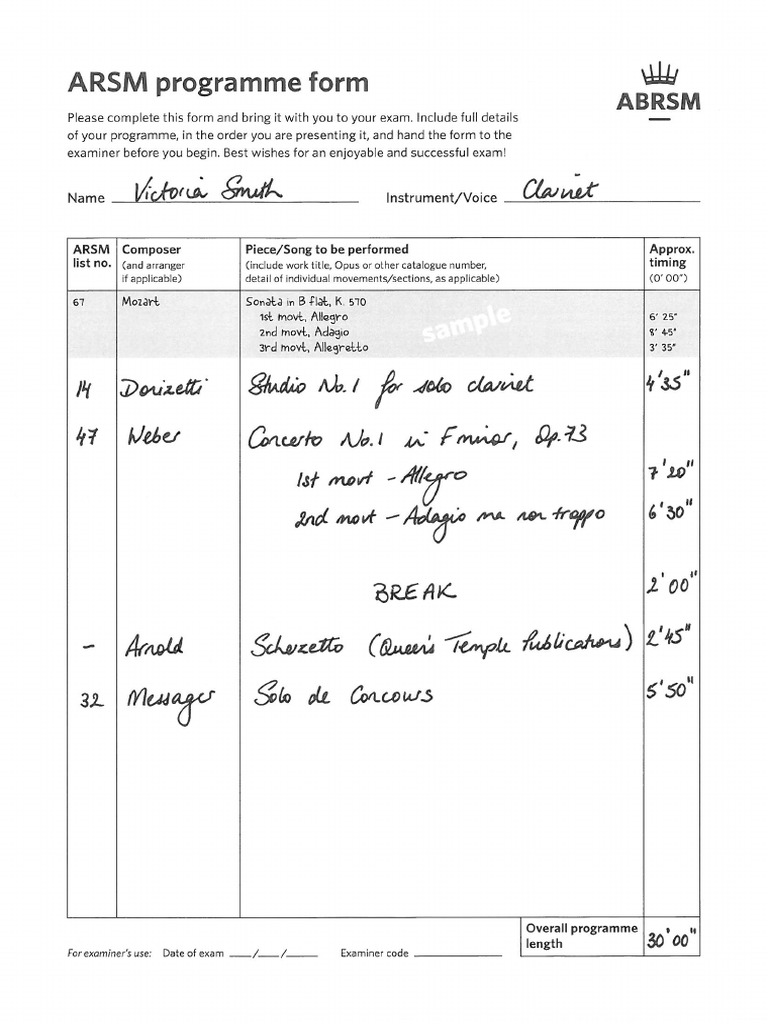 ARSM programme form
ABRSM
Please complete this form and bring it with you to your exam. Include full details
of your programme, in the order you are presenting it, and hand the form to the
examiner before you begin. Best wishes for an enjoyable and successful exam!
Name Victoria Smith Instrument/Voice Clarinet
ARSM Composer Piece/Song to be performed Approx.
list no. (and arranger (include work title, Opus or other catalogue number, timing
if applicable) detail of individual movements/sections, as applicable) (0' 00")
67 Mozart Sonata in B flat, K. 570
1st movt, Allegro 6' 25"
2nd movt, Adagio 8' 45"
3rd movt, Allegretto 3' 35"
sample
14 Donizetti Studio No.1 for solo clarinet 4'35"
47 Weber Concerto No.1 in F minor, Op.73
1st movt - Allegro 7'20"
2nd movt - Adagio ma non troppo 6'30"
BREAK 2'00"
- Arnold Scherzetto (Queen's Temple Publications) 2'45"
32 Messager Solo de Concours 5'50"
Overall programme
length 30'00"
For examiner's use: Date of exam __/__/__ Examiner code